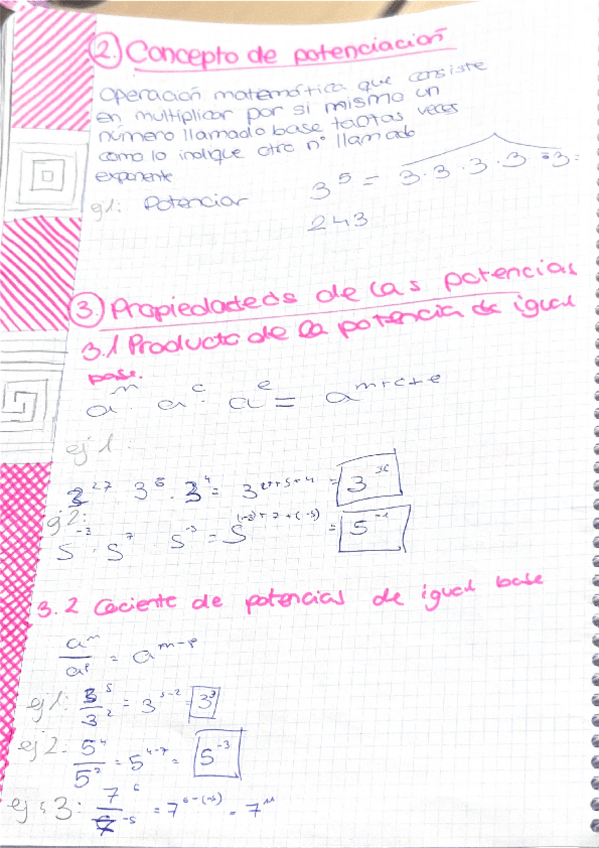 ② Concepto de potenciación
Operación matemática que consiste
en multiplicar por si mismo un
número llamado base tantas veces
como lo indique otro nº llamado
exponente
ej1: Potenciar 3⁵ = 3·3·3·3·3 =
243
③ Propiedadeds de las potencias
3.1 Producto de la potencia de igual
base.
aᵐ · aᶜ · aᵉ = aᵐ⁺ᶜ⁺ᵉ
ej 1:
3²⁷ · 3⁵ · 3⁴ = 3²⁷⁺⁵⁺⁴ = 3³⁶
ej2:
5⁻³ · 5⁷ · 5⁻⁵ = 5⁽⁻³⁾⁺⁷⁺⁽⁻⁵⁾ = 5⁻¹
3.2 Cociente de potencias de igual base
aᵐ/aᵖ = aᵐ⁻ᵖ
ej1: 3⁵/3² = 3⁵⁻² = 3³
ej2. 5⁴/5⁷ = 5⁴⁻⁷ = 5⁻³
ej 3: 7⁶/7⁻⁵ = 7⁶⁻⁽⁻⁵⁾ = 7¹¹